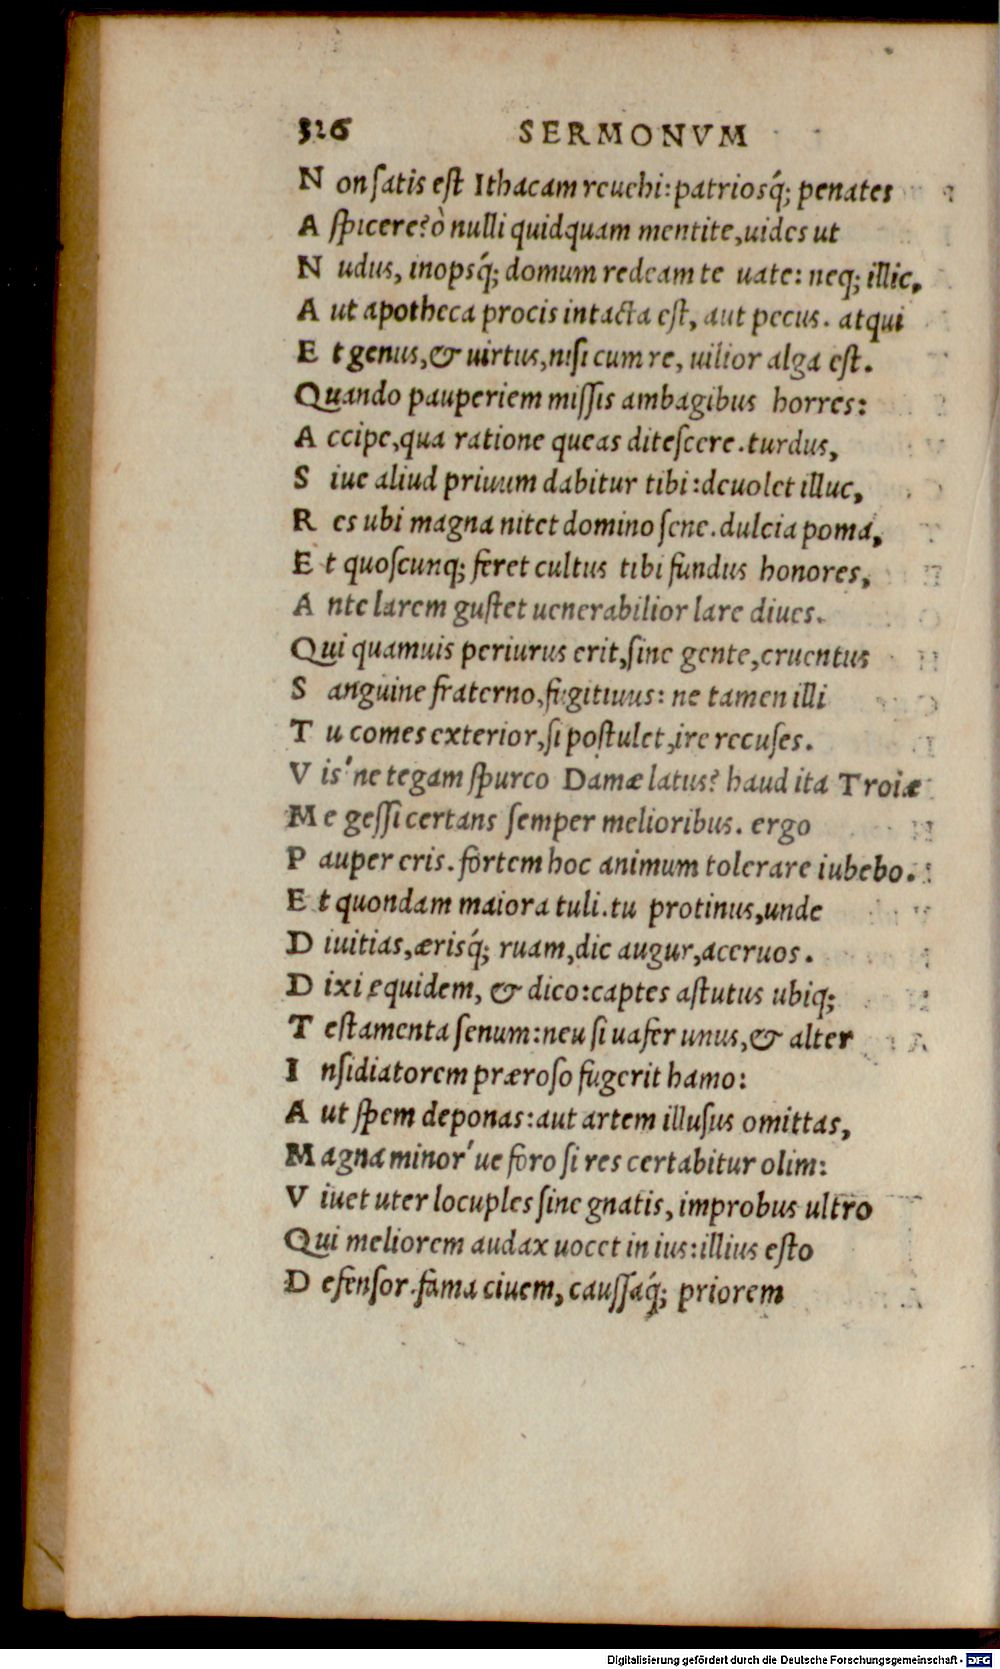 326 SERMONVM
N on ſatis eſt Ithacam reuehi: patriosq́; penates
A ſpicere? ò nulli quidquam mentite, uides ut
N udus, inopsq́; domum redeam te uate: neq; illic,
A ut apotheca procis intacta eſt, aut pecus. atqui
E t genus, & uirtus, niſi cum re, uilior alga eſt.
Quando pauperiem miſſis ambagibus horres:
A ccipe, qua ratione queas diteſcere. turdus,
S iue aliud priuum dabitur tibi: deuolet illuc,
R es ubi magna nitet domino ſene. dulcia poma,
E t quoſcunq; feret cultus tibi fundus honores,
A nte larem guſtet uenerabilior lare diues.
Qui quamuis periurus erit, ſine gente, cruentus
S anguine fraterno, fugitiuus: ne tamen illi
T u comes exterior, ſi poſtulet, ire recuſes.
V is' ne tegam ſpurco Damæ latus? haud ita Troiæ
M e geſſi certans ſemper melioribus. ergo
P auper eris. fortem hoc animum tolerare iubebo.
E t quondam maiora tuli. tu protinus, unde
D iuitias, ærisq́; ruam, dic augur, aceruos.
D ixi equidem, & dico: captes aſtutus ubiq;
T eſtamenta ſenum: neu ſi uafer unus, & alter
I nſidiatorem præroſo fugerit hamo:
A ut ſpem deponas: aut artem illuſus omittas,
M agna minor' ue foro ſi res certabitur olim:
V iuet uter locuples ſine gnatis, improbus ultro
Qui meliorem audax uocet in ius: illius eſto
D efenſor. fama ciuem, cauſſaq́; priorem
Digitalisierung gefördert durch die Deutsche Forschungsgemeinschaft - DFG